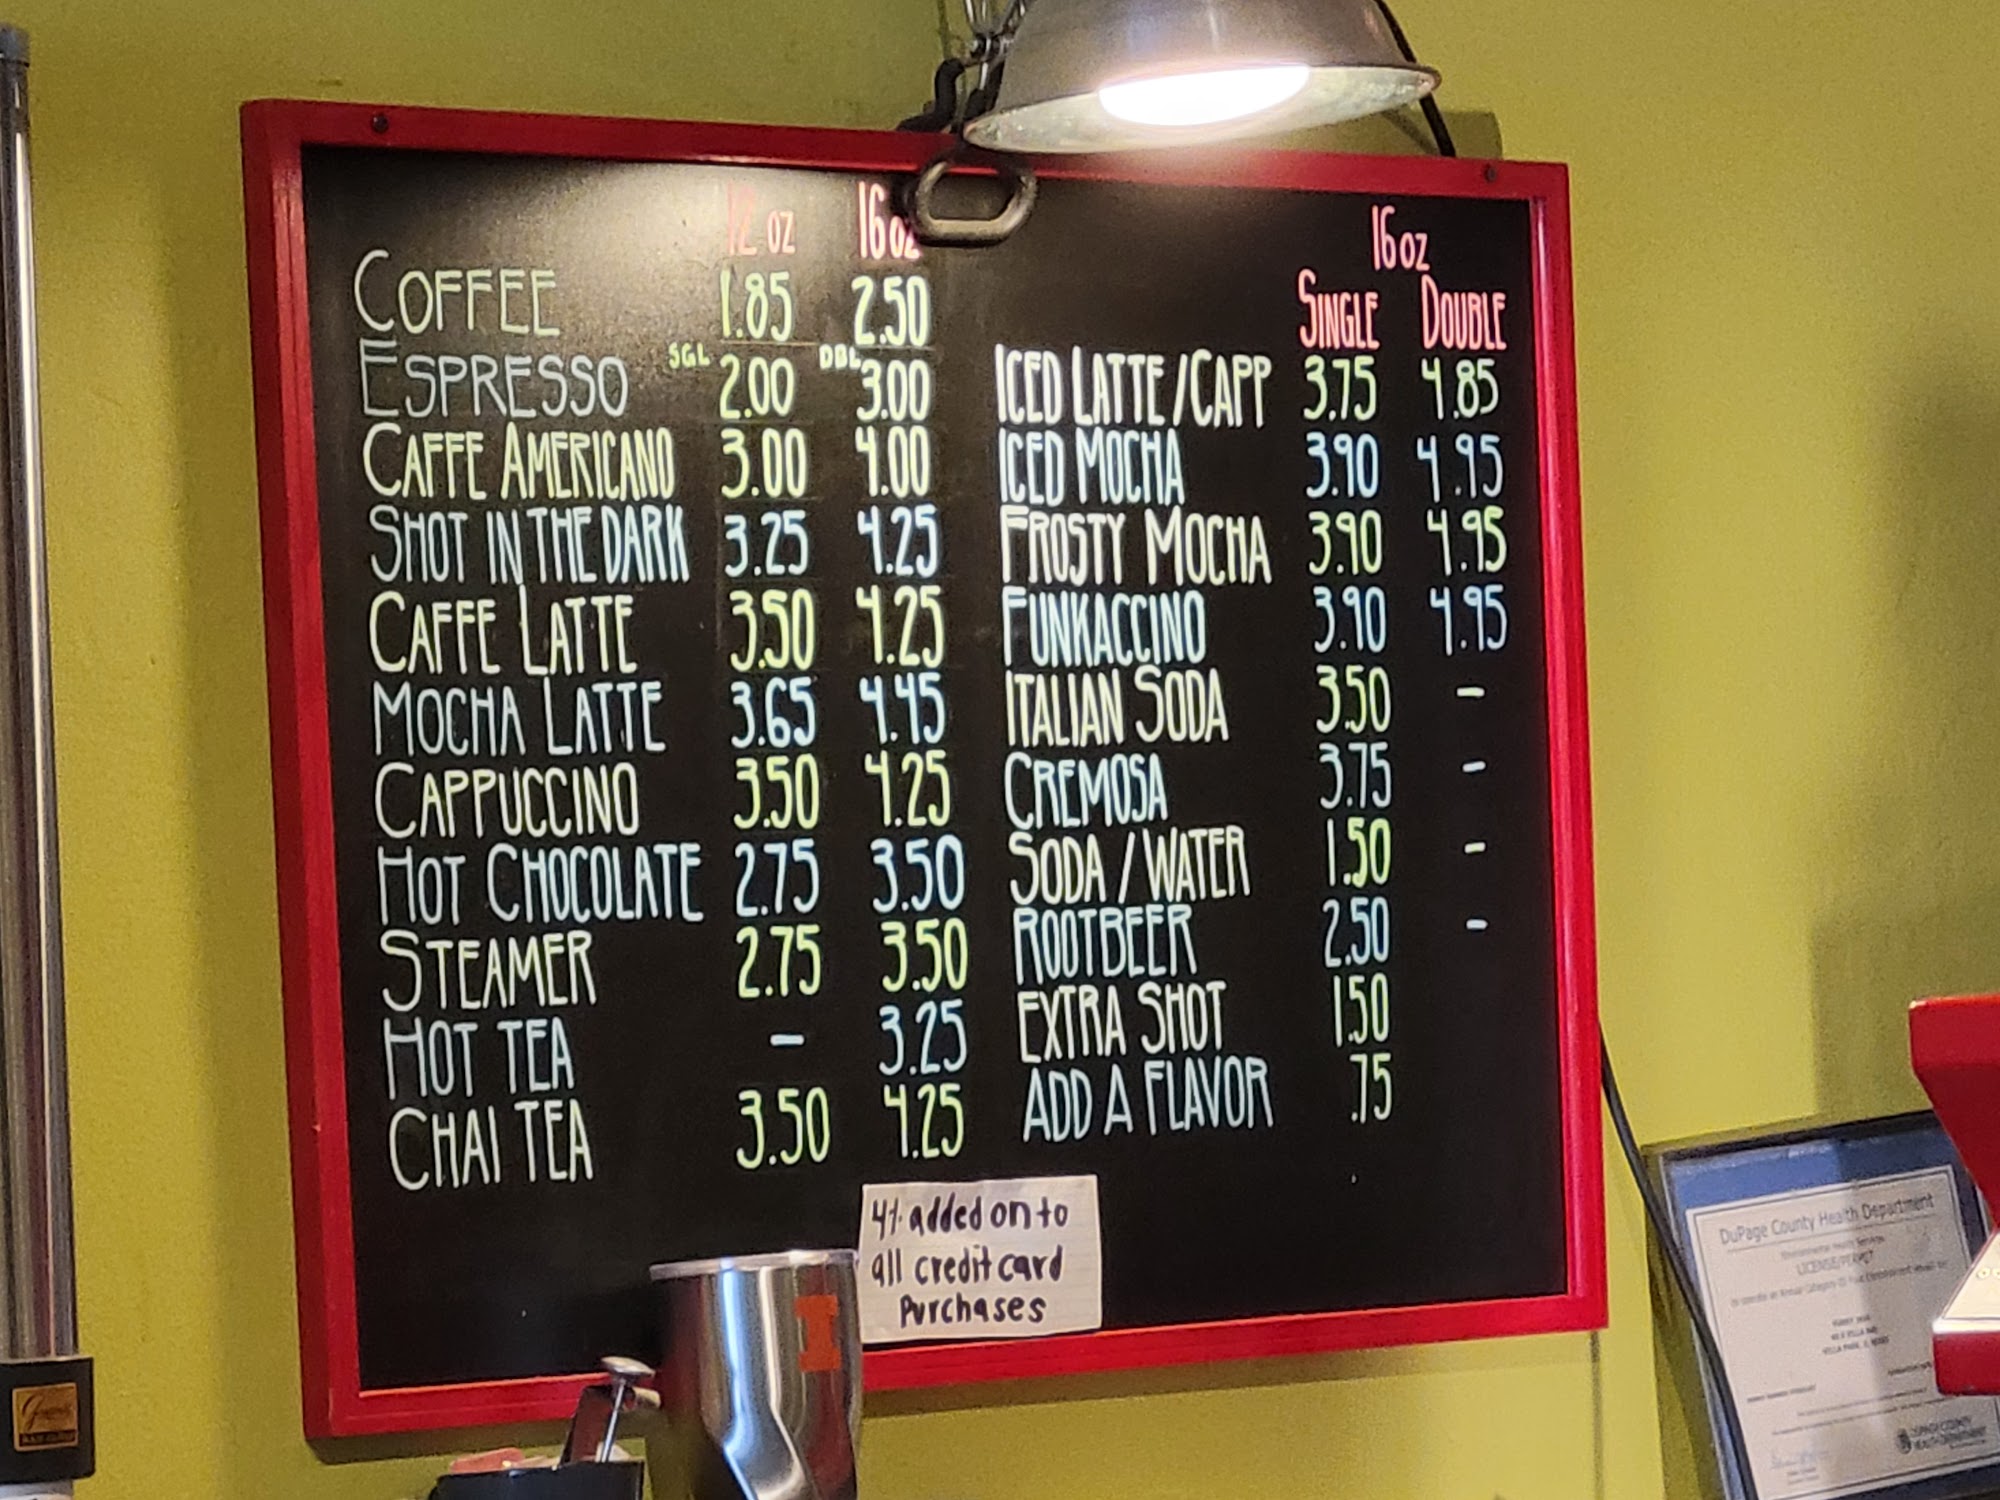 12 oz 16 oz
COFFEE 1.85 2.50
ESPRESSO SGL 2.00 DBL 3.00
CAFFE AMERICANO 3.00 4.00
SHOT IN THE DARK 3.25 4.25
CAFFE LATTE 3.50 4.25
MOCHA LATTE 3.65 4.45
CAPPUCCINO 3.50 4.25
HOT CHOCOLATE 2.75 3.50
STEAMER 2.75 3.50
HOT TEA - 3.25
CHAI TEA 3.50 4.25
16 oz
SINGLE DOUBLE
ICED LATTE / CAPP 3.75 4.85
ICED MOCHA 3.90 4.95
FROSTY MOCHA 3.90 4.95
FUNKACCINO 3.90 4.95
ITALIAN SODA 3.50 -
CREMOSA 3.75 -
SODA / WATER 1.50 -
ROOTBEER 2.50 -
EXTRA SHOT 1.50
ADD A FLAVOR .75
4% added on to
all credit card
Purchases
I
DuPage County Health Department
LICENSE/PERMIT